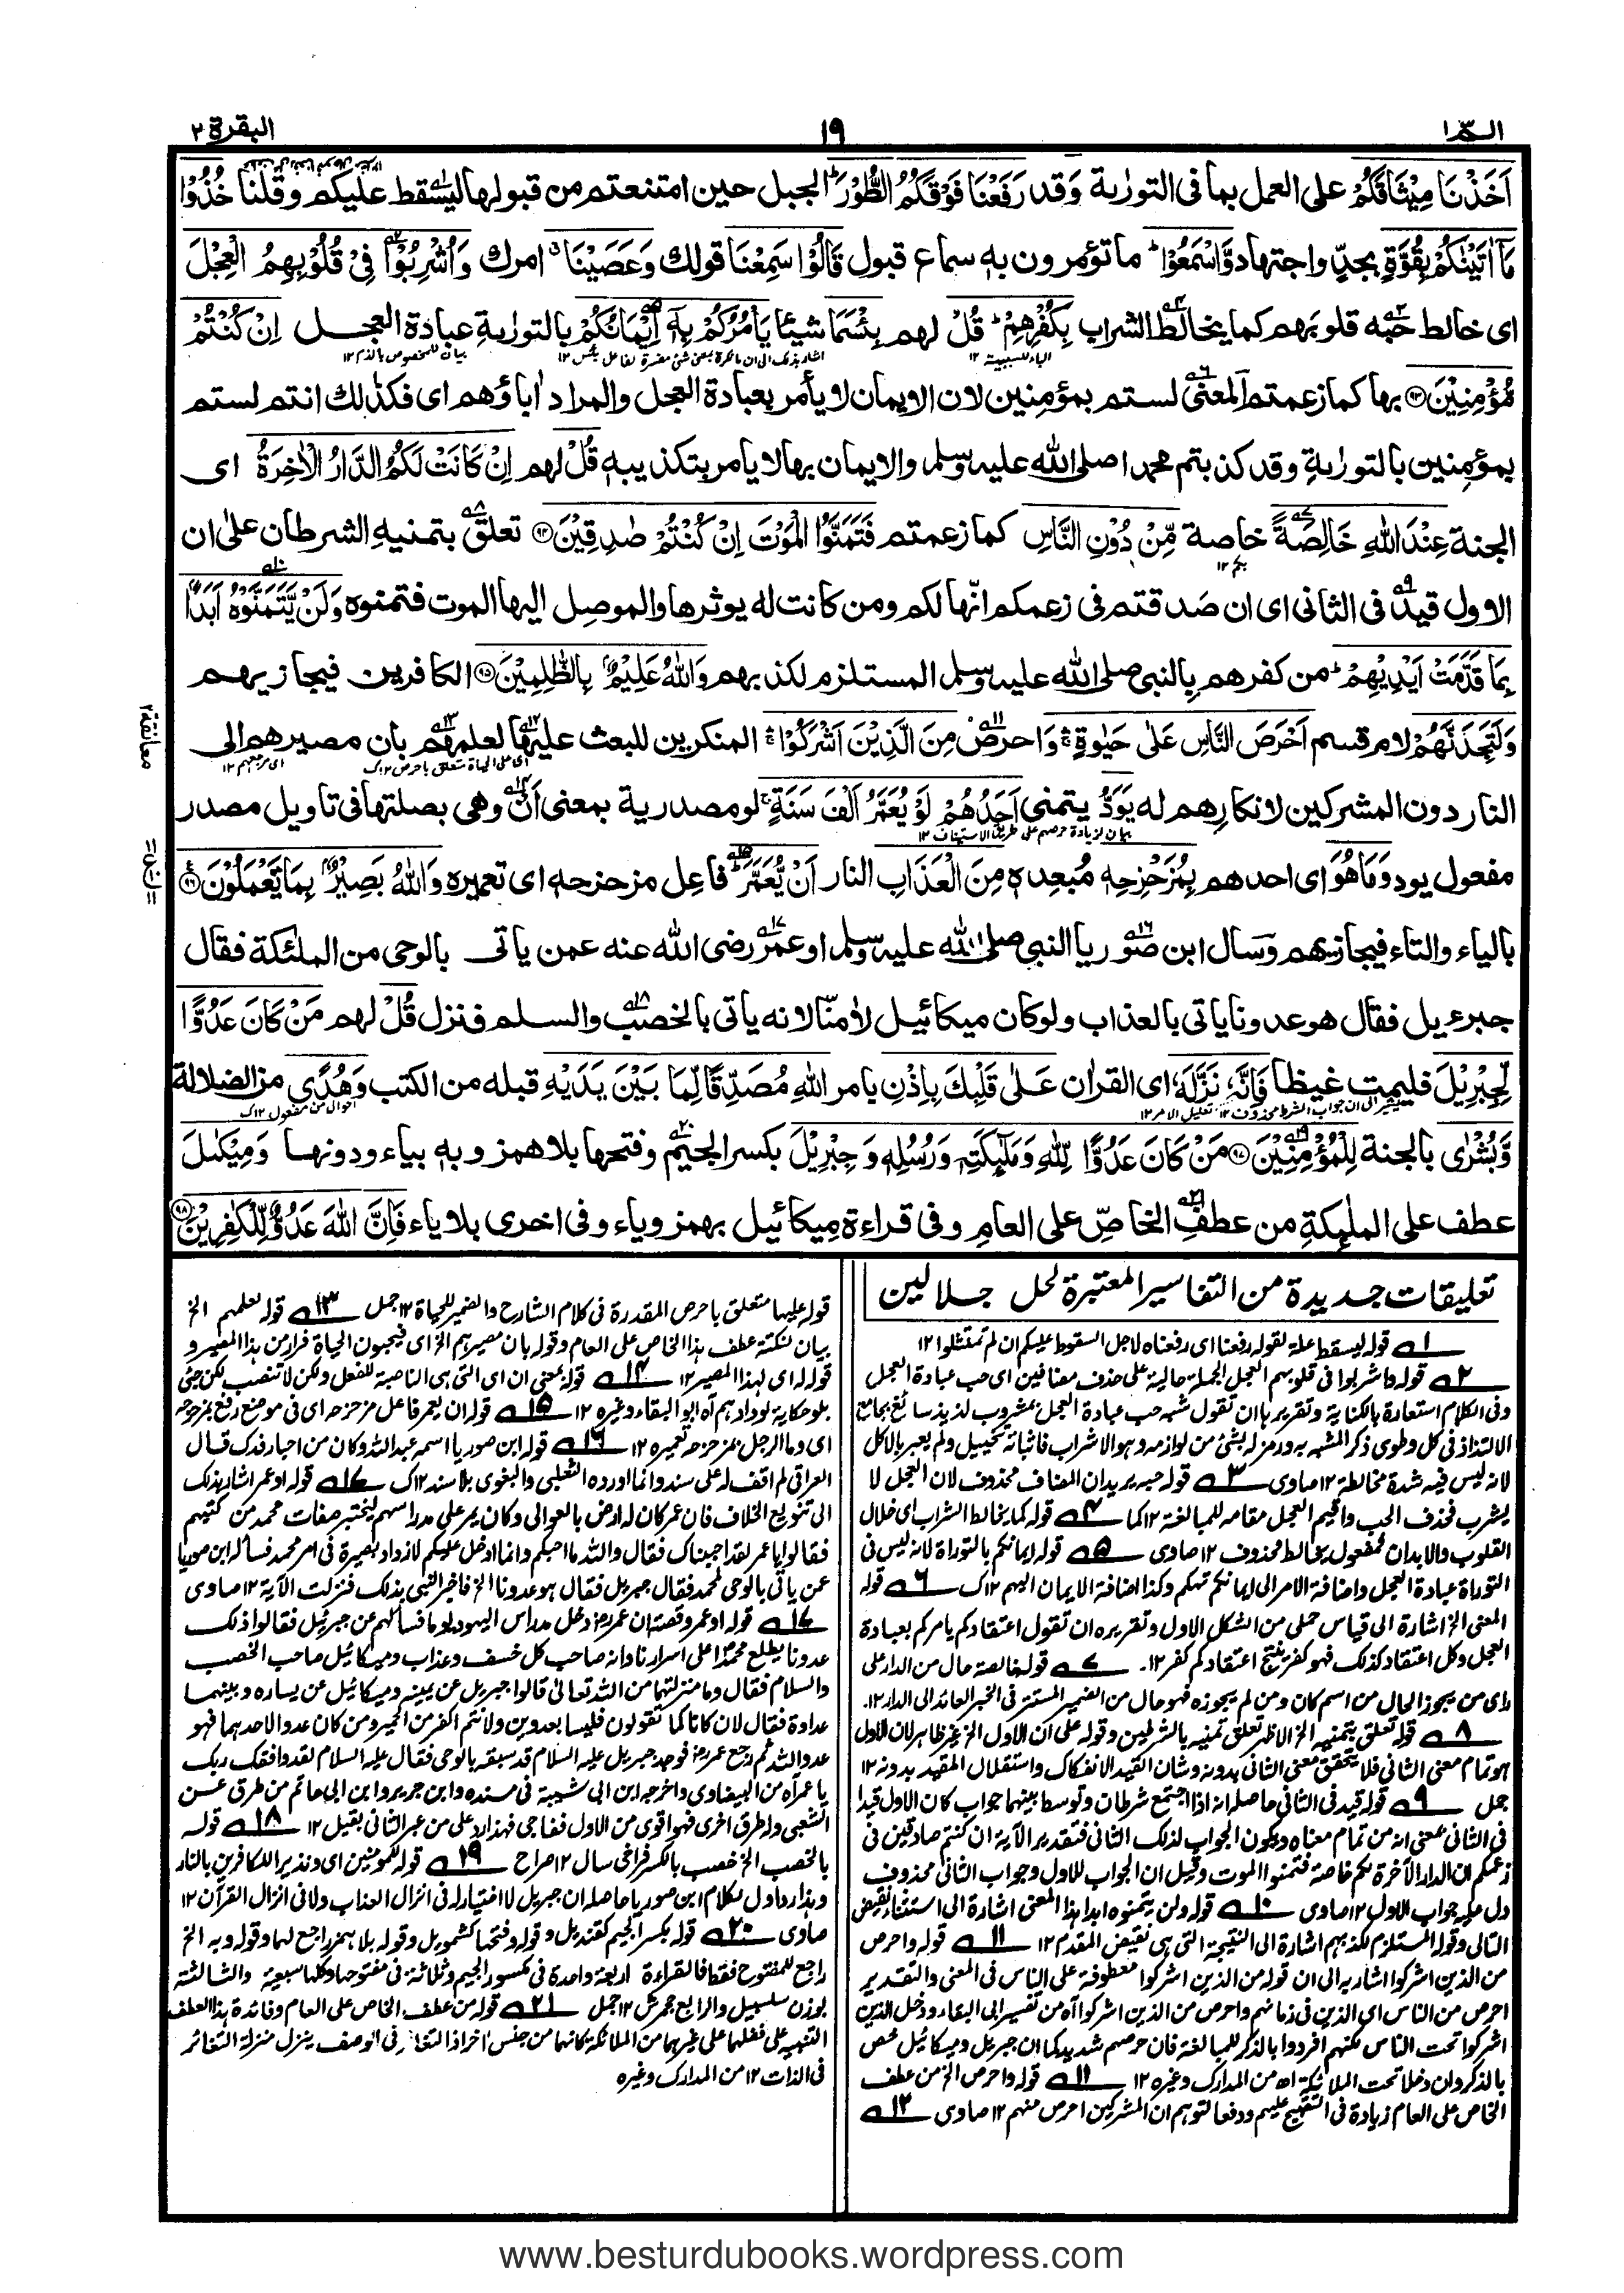 الٓمّٓ ١
١٩
البقرة ٢
اَخَذْنَا مِيْثَاقَكُمْ على العمل بما فى التورٰىة وَقد رَفَعْنَا فَوْقَكُمُ الطُّوْرَ ؕ الجبل حين امتنعتم من قبولها ليسقط عليكم وقلنا خُذُوْا
مَآ اٰتَيْنٰكُمْ بِقُوَّةٍ بجدٍّ واجتهاد وَّاسْمَعُوْا ؕ ما تؤمرون به سماع قبول قَالُوْا سَمِعْنَا قولك وَعَصَيْنَا امرك وَاُشْرِبُوْا فِىْ قُلُوْبِهِمُ الْعِجْلَ
اى خالط حبّه قلوبهم كما يخالط الشراب بِكُفْرِهِمْ ؕ قُلْ لهم بِئْسَمَا شيئا يَاْمُرُكُمْ بِهٖٓ اِيْمَانُكُمْ بالتورٰىة عبادة العجل اِنْ كُنْتُمْ
الباء للسببية ١٢
بيان للمخصوص بالذم ١٢
مُّؤْمِنِيْنَ ۝٩٣ بها كما زعمتم المعنى لستم بمؤمنين لان الايمان لا يأمر بعبادة العجل والمراد اٰباؤهم اى فكذٰلك انتم لستم
بمؤمنين بالتورٰىة وقد كذبتم محمدا صلى الله عليه وسلم والايمان بها لا يامر بتكذيبه قُلْ لهم اِنْ كَانَتْ لَكُمُ الدَّارُ الْاٰخِرَةُ اى
الجنة عِنْدَ اللهِ خَالِصَةً خاصة مِّنْ دُوْنِ النَّاسِ كما زعمتم فَتَمَنَّوُا الْمَوْتَ اِنْ كُنْتُمْ صٰدِقِيْنَ ۝٩٤ تعلق بتمنيه الشرطان على ان
بكم ١٢
الاول قيد فى الثانى اى ان صدقتم فى زعمكم انّها لكم ومن كانت له يوثرها والموصل اليها الموت فتمنوه وَلَنْ يَّتَمَنَّوْهُ اَبَدًۢا
بِمَا قَدَّمَتْ اَيْدِيْهِمْ ؕ من كفرهم بالنبى صلى الله عليه وسلم المستلزم لكذبهم وَاللهُ عَلِيْمٌۢ بِالظّٰلِمِيْنَ ۝٩٥ الكافرين فيجازيهم
وَلَتَجِدَنَّهُمْ لام قسم اَحْرَصَ النَّاسِ عَلٰى حَيٰوةٍ وَاحرص مِنَ الَّذِيْنَ اَشْرَكُوْا المنكرين للبعث عليها لعلمهم بان مصيرهم الى
اى على الحياة متعلق باحرص ١٢ك
اى مرجعهم ١٢
معانقة ٢
النار دون المشركين لانكارهم له يَوَدُّ يتمنى اَحَدُهُمْ لَوْ يُعَمَّرُ اَلْفَ سَنَةٍ لو مصدرية بمعنى اَنْ وهى بصلتها فى تاويل مصدر
بيان لزيادة حرصهم على طريق الاستيناف ١٢
مفعول يود وَمَا هُوَ اى احدهم بِمُزَحْزِحِهٖ مُبعده مِنَ الْعَذَابِ النار اَنْ يُّعَمَّرَ ؕ فاعل مزحزحه اى تعميره وَاللهُ بَصِيْرٌۢ بِمَا يَعْمَلُوْنَ ۝٩٦
بالياء والتاء فيجازيهم وسأل ابن صوريا النبى صلى الله عليه وسلم او عمر رضى الله عنه عمن ياتى بالوحى من الملٰئكة فقال
جبرءيل فقال هو عدونا ياتى بالعذاب ولو كان ميكائيل لاٰمنّا لانه ياتى بالخصب والسلم فنزل قُلْ لهم مَنْ كَانَ عَدُوًّا
لِّجِبْرِيْلَ فليمت غيظا فَاِنَّهٗ نَزَّلَهٗ اى القراٰن عَلٰى قَلْبِكَ بِاِذْنِ بامر اللهِ مُصَدِّقًا لِّمَا بَيْنَ يَدَيْهِ قبله من الكتب وَهُدًى من الضلالة
يشير الى ان جواب الشرط محذوف ١٢ تعليل الامر ١٢
احوال من مفعول ١٢ك
وَّبُشْرٰى بالجنة لِلْمُؤْمِنِيْنَ ۝٩٧ مَنْ كَانَ عَدُوًّا لِّلّٰهِ وَمَلٰٓئِكَتِهٖ وَرُسُلِهٖ وَجِبْرِيْلَ بكسر الجيم وفتحها بلا همز وبه بياء ودونها وَمِيْكٰىلَ
عطف على الملٰئكة من عطف الخاصّ على العام وفى قراءة ميكائيل بهمز وياء وفى اخرى بلا ياء فَاِنَّ اللهَ عَدُوٌّ لِّلْكٰفِرِيْنَ ۝٩٨
تعليقات جديدة من التفاسير المعتبرة لحل جلالين
١ قوله ليسقط علة لقوله رفعنا اى رفعناه لاجل السقوط عليكم ان لم تمتثلوا ١٢
٢ قوله واشربوا فى قلوبهم العجل الجملة حالية على حذف مضافين اى حب عبادة العجل
وفى الكلام استعارة بالكناية وتقريرها ان تقول شبه حب عبادة العجل بمشروب لذيذ سائغ بجامع
الالتذاذ فى كل وطوى ذكر المشبه به ورمز له بشئ من لوازمه وهو الاشراب فاثباته تخييل ولم يعبر بالاكل
لانه ليس فيه شدة مخالطة ١٢ صاوى ٣ قوله حبه يريد ان المضاف محذوف لان العجل لا
يشرب فحذف الحب واقيم العجل مقامه للمبالغة ١٢ كما ٤ قوله كما يخالط الشراب اى خلال
القلوب والابدان فمفعول يخالط محذوف ١٢ صاوى ٥ قوله ايمانكم بالتوراة لانه ليس فى
التوراة عبادة العجل واضافة الامر الى ايمانكم تهكم وكذا اضافة الايمان اليهم ١٢ك ٦ قوله
المعنى الخ اشارة الى قياس حملى من الشكل الاول وتقريره ان تقول اعتقادكم يامركم بعبادة
العجل وكل اعتقاد كذلك فهو كفر ينتج اعتقادكم كفر ١٢. ٧ قوله خالصة حال من الدار على
راى من يجوز الحال من اسم كان ومن لم يجوزه فهو حال من الضمير المستتر فى الخبر العائد الى الدار ١٢.
٨ قوله تعلق بتمنيه الخ الاظهر تعلق تمنيه بالشرطين وقوله على ان الاول الخ غير ظاهر لان الاول
هو تمام معنى الثانى فلا يتحقق معنى الثانى بدونه وشان القيد الانفكاك واستقلال المقيد بدونه ١٢
جمل ٩ قوله قيد فى الثانى حاصله انه اذا اجتمع شرطان وتوسط بينهما جواب كان الاول قيدا
فى الثانى بمعنى انه من تمام معناه ويكون الجواب لذلك الثانى فتقدير الآية ان كنتم صادقين فى
زعمكم ان الدار الآخرة لكم خاصة فتمنوا الموت وقيل ان الجواب للاول وجواب الثانى محذوف
دل عليه جواب الاول ١٢ صاوى ١٠ قوله ولن يتمنوه ابدا هذا المعنى اشارة الى استثناء نقيض
التالى وقوله المستلزم لكذبهم اشارة الى النتيجة التى هى نقيض المقدم ١٢ ١١ قوله واحرص
من الذين اشركوا اشار به الى ان قوله من الذين اشركوا معطوفة على الناس فى المعنى والتقدير
احرص من الناس اى الذين فى زمانهم واحرص من الذين اشركوا اه من تفسير ابى البقاء ودخل الذين
اشركوا تحت الناس لكنهم افردوا بالذكر للمبالغة فان حرصهم شديد كما ان جبريل وميكائيل خص
بالذكر وان دخلا تحت الملائكة اه من المدارك وغيره ١٢ ١١ قوله واحرص الخ من عطف
الخاص على العام زيادة فى التقبيح عليهم ودفعا لتوهم ان المشركين احرص منهم ١٢ صاوى ١٢
قوله عليها متعلق باحرص المقدرة فى كلام الشارح والضمير للحياة ١٢ جمل ١٣ قوله لعلمهم الخ
بيان لنكتة عطف هذا الخاص على العام وقوله بان مصيرهم الخ اى فيحبون الحياة فرارا من هذا المصير و
قوله له اى لهذا المصير ١٢ ١٤ قوله بمعنى ان اى التى هى الناصبة للفعل ولكن لا تنصب لكن جئ
بلو حكاية لودادهم اه ابو البقاء وغيره ١٢ ١٥ قوله ان يعمر فاعل مزحزحه اى فى موضع رفع بمزحزحه
اى وما الرجل بمزحزحه تعميره ١٢ ١٦ قوله ابن صوريا اسمه عبد الله وكان من احبار فدك قال
العراقى لم اقف له على سند وانما اورده الثعلبى والبغوى بلا سند ١٢ك ١٧ قوله او عمر اشار بذلك
الى تنويع الخلاف فان عمر كان له ارض بالعوالى وكان يمر على مدراسهم ليختبر صفات محمد من كتبهم
فقالوا يا عمر لقد احببناك فقال والله ما احبكم وانما ادخل عليكم لازداد بصيرة فى امر محمد فسأله ابن صوريا
عن ياتى بالوحى لمحمد فقال جبريل فقال هو عدونا الخ فاخبر النبى بذلك فنزلت الآية ١٢ صاوى
١٧ قوله او عمر وقصته ان عمر رض دخل مدراس اليهود يوما فسألهم عن جبرئيل فقالوا ذلك
عدونا يطلع محمدا على اسرارنا وانه صاحب كل خسف وعذاب وميكائيل صاحب الخصب
والسلام فقال وما منزلتهما من الله تعالى قالوا جبريل عن يمينه وميكائيل عن يساره وبينهما
عداوة فقال لان كانا كما تقولون فليسا بعدوين ولانتم اكفر من الحمير ومن كان عدوا لاحدهما فهو
عدو الله ثم رجع عمر رض فوجد جبريل عليه السلام قد سبقه بالوحى فقال عليه السلام لقد وافقك ربك
يا عمر اه من البيضاوى واخرجه ابن ابى شيبة فى مسنده وابن جرير وابن ابى حاتم من طرق عن
الشعبى وله طرق اخرى فهو اقوى من الاول فهذا رد على من عبر الثانى بقيل ١٢ ١٨ قوله
بالخصب الخ خصب بالكسر فراخى سال ١٢ صراح ١٩ قوله للمؤمنين اى ونذير للكافرين بالنار
وهذا رد اول لكلام ابن صوريا حاصله ان جبريل لا اختيار له فى انزال العذاب ولا فى انزال القرآن ١٢
صاوى ٢٠ قوله بكسر الجيم كقنديل وقوله وفتحها كشمويل وقوله بلا همز راجع لهما وقوله وبه الخ
راجع للمفتوح فقط فالقراءة اربعة واحدة فى مكسور الجيم وثلاثة فى مفتوحها وكلها سبعية والثالثة
بوزن سلسبيل والرابع جحمرش ١٢ جمل ٢١ قوله من عطف الخاص على العام وفائدة هذا العطف
التنبيه على فضلهما على غيرهما من الملائكة كانهما من جنس آخر اذ التغاير فى الوصف ينزل منزلة التغائر
فى الذات ١٢ من المدارك وغيره
www.besturdubooks.wordpress.com